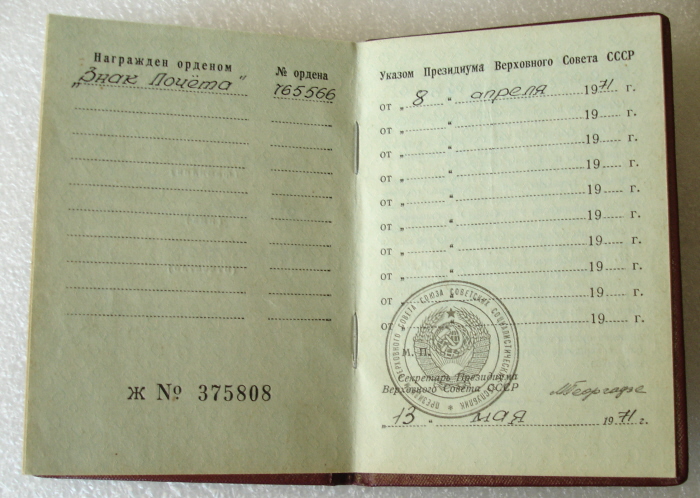 Награжден орденом
№ ордена
„Знак Почёта“
765566
Ж № 375808
Указом Президиума Верховного Совета СССР
от „ 8 “ апреля 1971 г.
от „ “ 19 г.
от „ “ 19 г.
от „ “ 19 г.
от „ “ 19 г.
от „ “ 19 г.
от „ “ 19 г.
от „ “ 19 г.
от „ “ 19 г.
от „ “ 19 г.
ПРЕЗИДИУМ ВЕРХОВНОГО СОВЕТА СОЮЗА СОВЕТСКИХ СОЦИАЛИСТИЧЕСКИХ РЕСПУБЛИК
М. П.
Секретарь Президиума
Верховного Совета СССР
МГеоргадзе
„ 13 “ мая 1971 г.